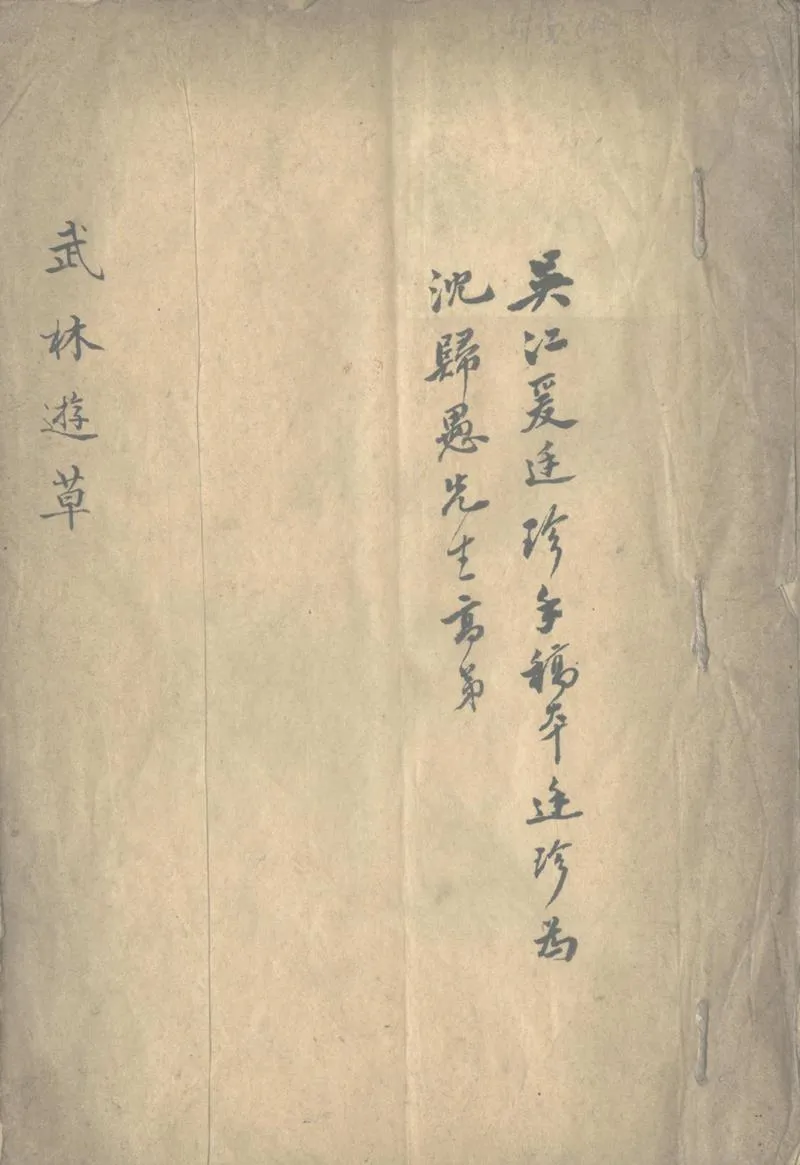 吳江夏廷珍手稿本廷珍為
沈歸愚先生高第
武林遊草